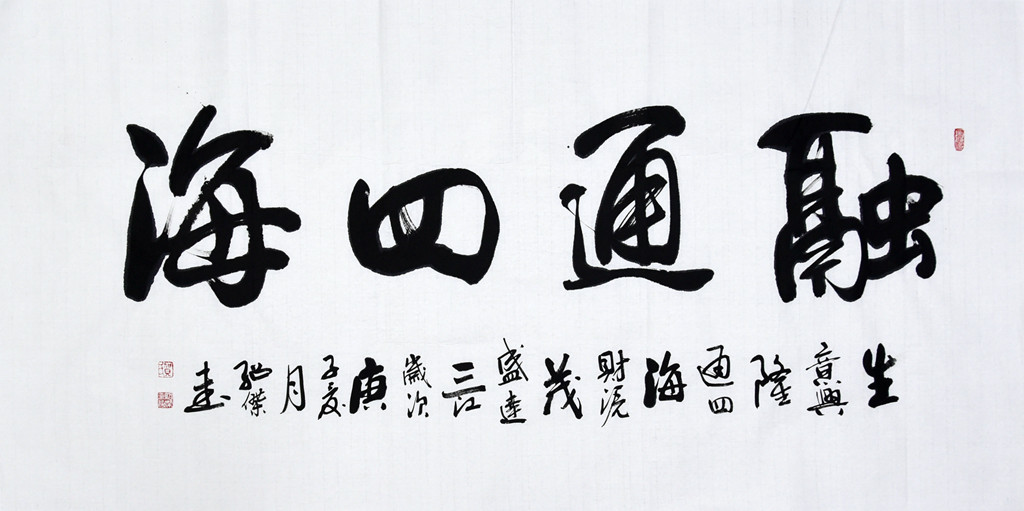 融通四海
生意興隆通四海財源茂盛達三江歲次庚子夏月驰傑書